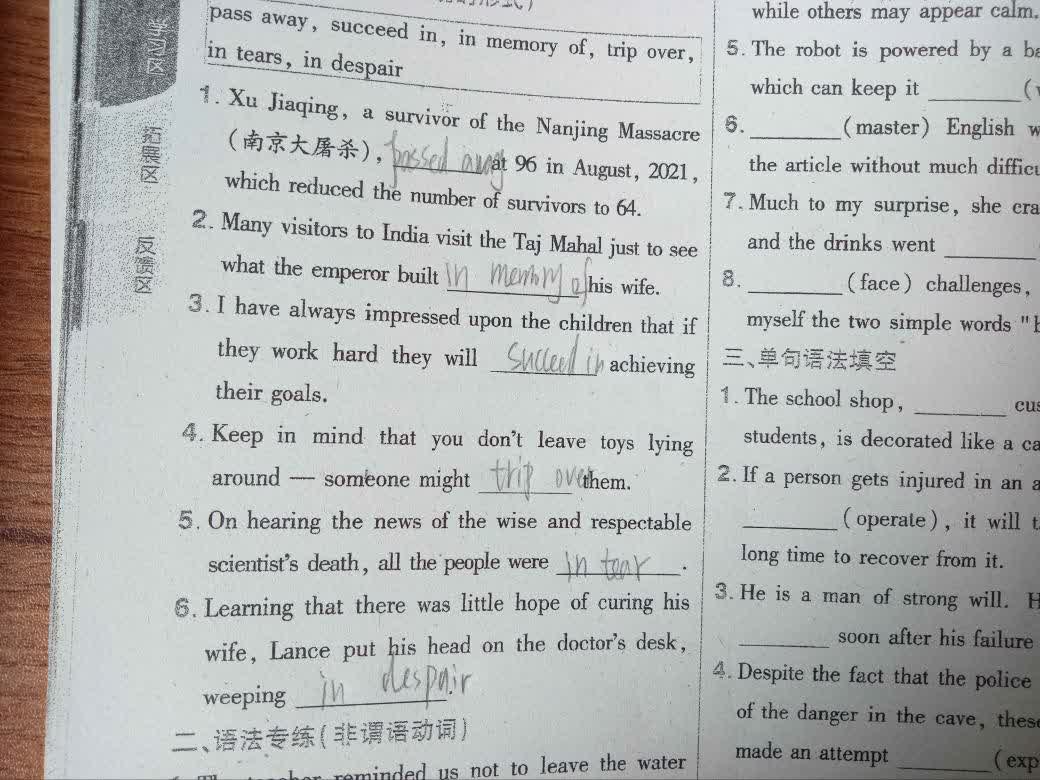 pass away, succeed in, in memory of, trip over,
in tears, in despair
1. Xu Jiaqing, a survivor of the Nanjing Massacre
(南京大屠杀), passed away at 96 in August, 2021,
which reduced the number of survivors to 64.
2. Many visitors to India visit the Taj Mahal just to see
what the emperor built in memory of his wife.
3. I have always impressed upon the children that if
they work hard they will succeed in achieving
their goals.
4. Keep in mind that you don't leave toys lying
around — someone might trip over them.
5. On hearing the news of the wise and respectable
scientist's death, all the people were in tear.
6. Learning that there was little hope of curing his
wife, Lance put his head on the doctor's desk,
weeping in despair.
二、语法专练(非谓语动词)
reminded us not to leave the water
while others may appear calm.
5. The robot is powered by a
which can keep it ________ (
6. ________ (master) English
the article without much
7. Much to my surprise, she
and the drinks went ________
8. ________ (face) challenges,
myself the two simple words "
三、单句语法填空
1. The school shop, ________
students, is decorated like a
2. If a person gets injured in an
________ (operate), it will
long time to recover from it.
3. He is a man of strong will.
________ soon after his failure
4. Despite the fact that the police
of the danger in the cave,
made an attempt ________ (
拓展区
反馈区